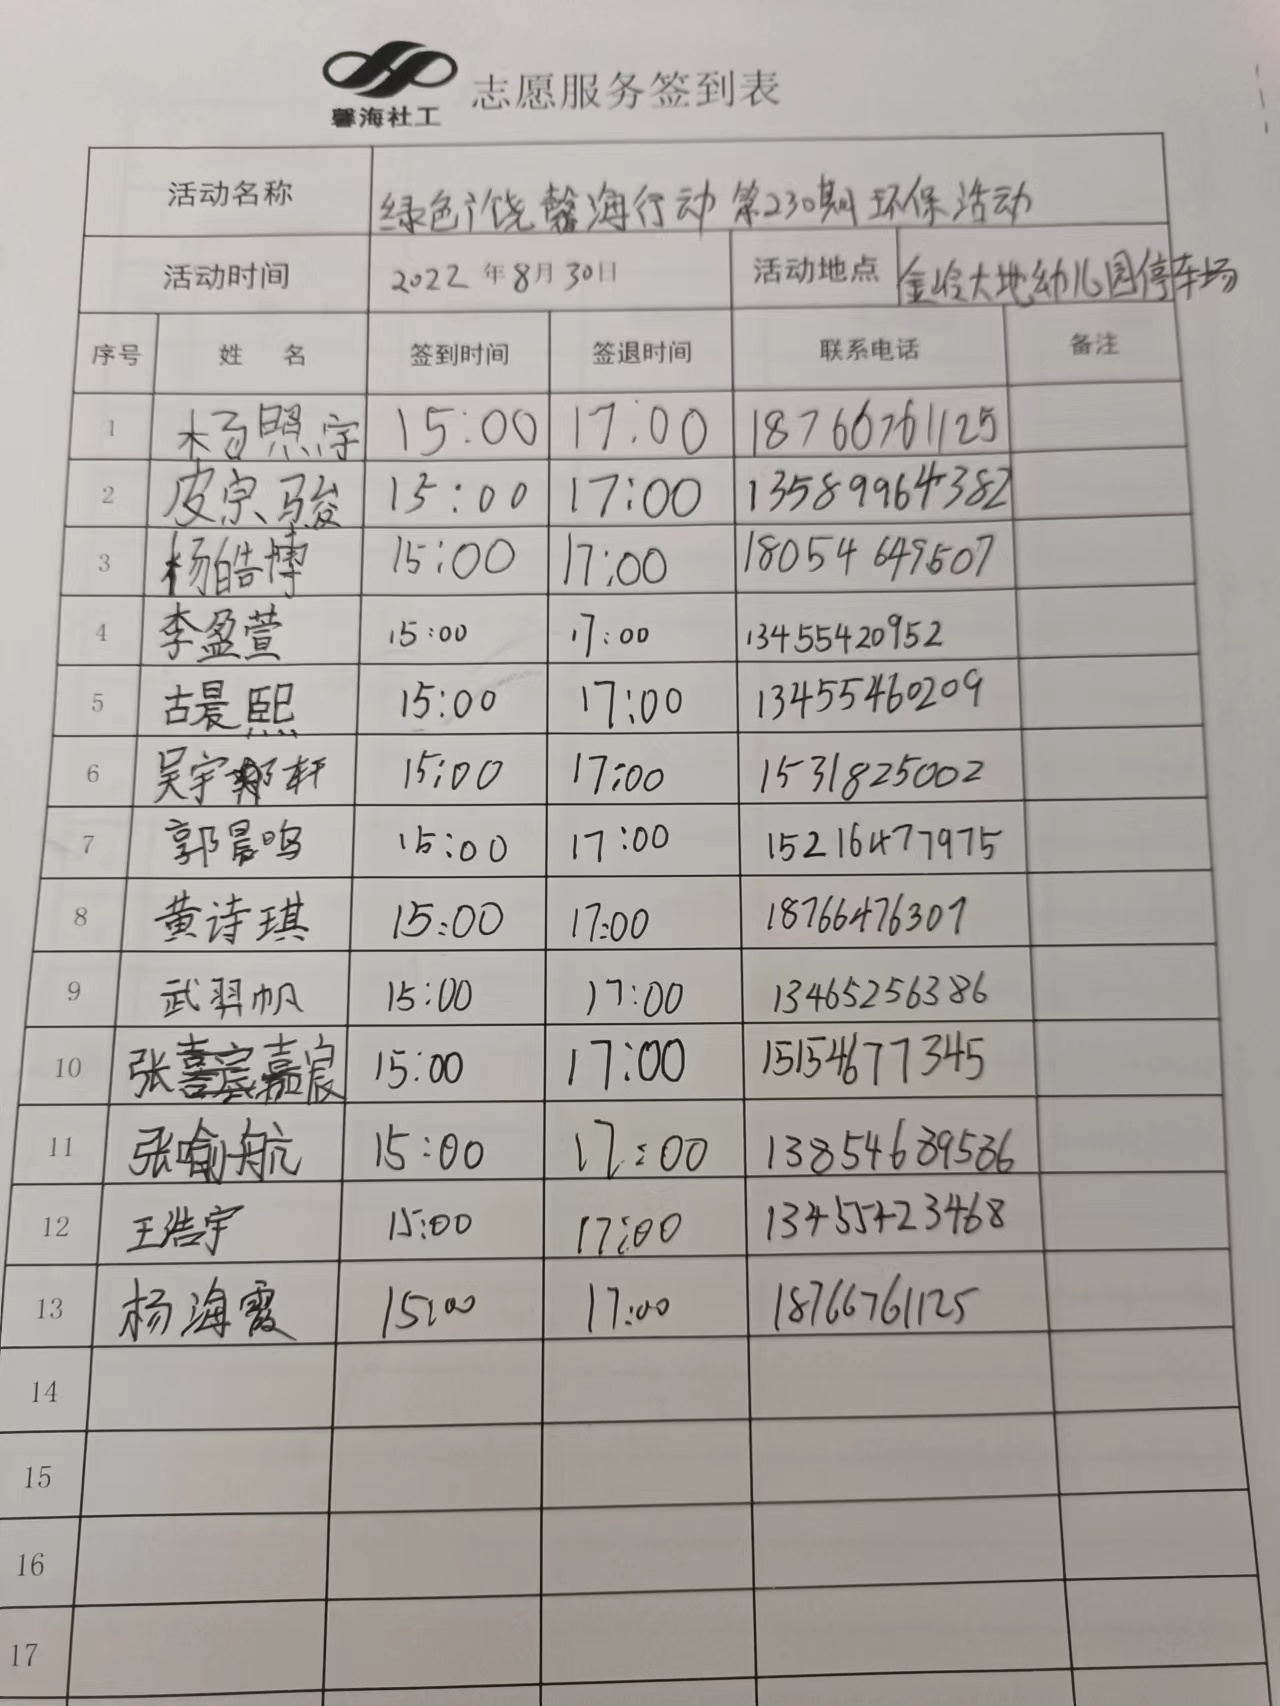 馨海社工
志愿服务签到表
活动名称 绿色广饶 馨海行动 第230期 环保活动
活动时间 2022年8月30日 活动地点 金岭大地幼儿园停车场
序号 姓 名 签到时间 签退时间 联系电话 备注
1 杨照宇 15:00 17:00 18766761125
2 皮宗骏 15:00 17:00 13589964382
3 杨皓博 15:00 17:00 18054649507
4 李盈萱 15:00 17:00 13455420952
5 古晨熙 15:00 17:00 13455460209
6 吴宇轩 15:00 17:00 1531825002
7 郭晨鸣 15:00 17:00 15216477975
8 黄诗琪 15:00 17:00 18766476307
9 武羿帆 15:00 17:00 13465256386
10 张嘉宸 15:00 17:00 15154677345
11 张喻航 15:00 17:00 13854689586
12 王浩宇 15:00 17:00 13455423468
13 杨海霞 15:00 17:00 18766761125
14
15
16
17